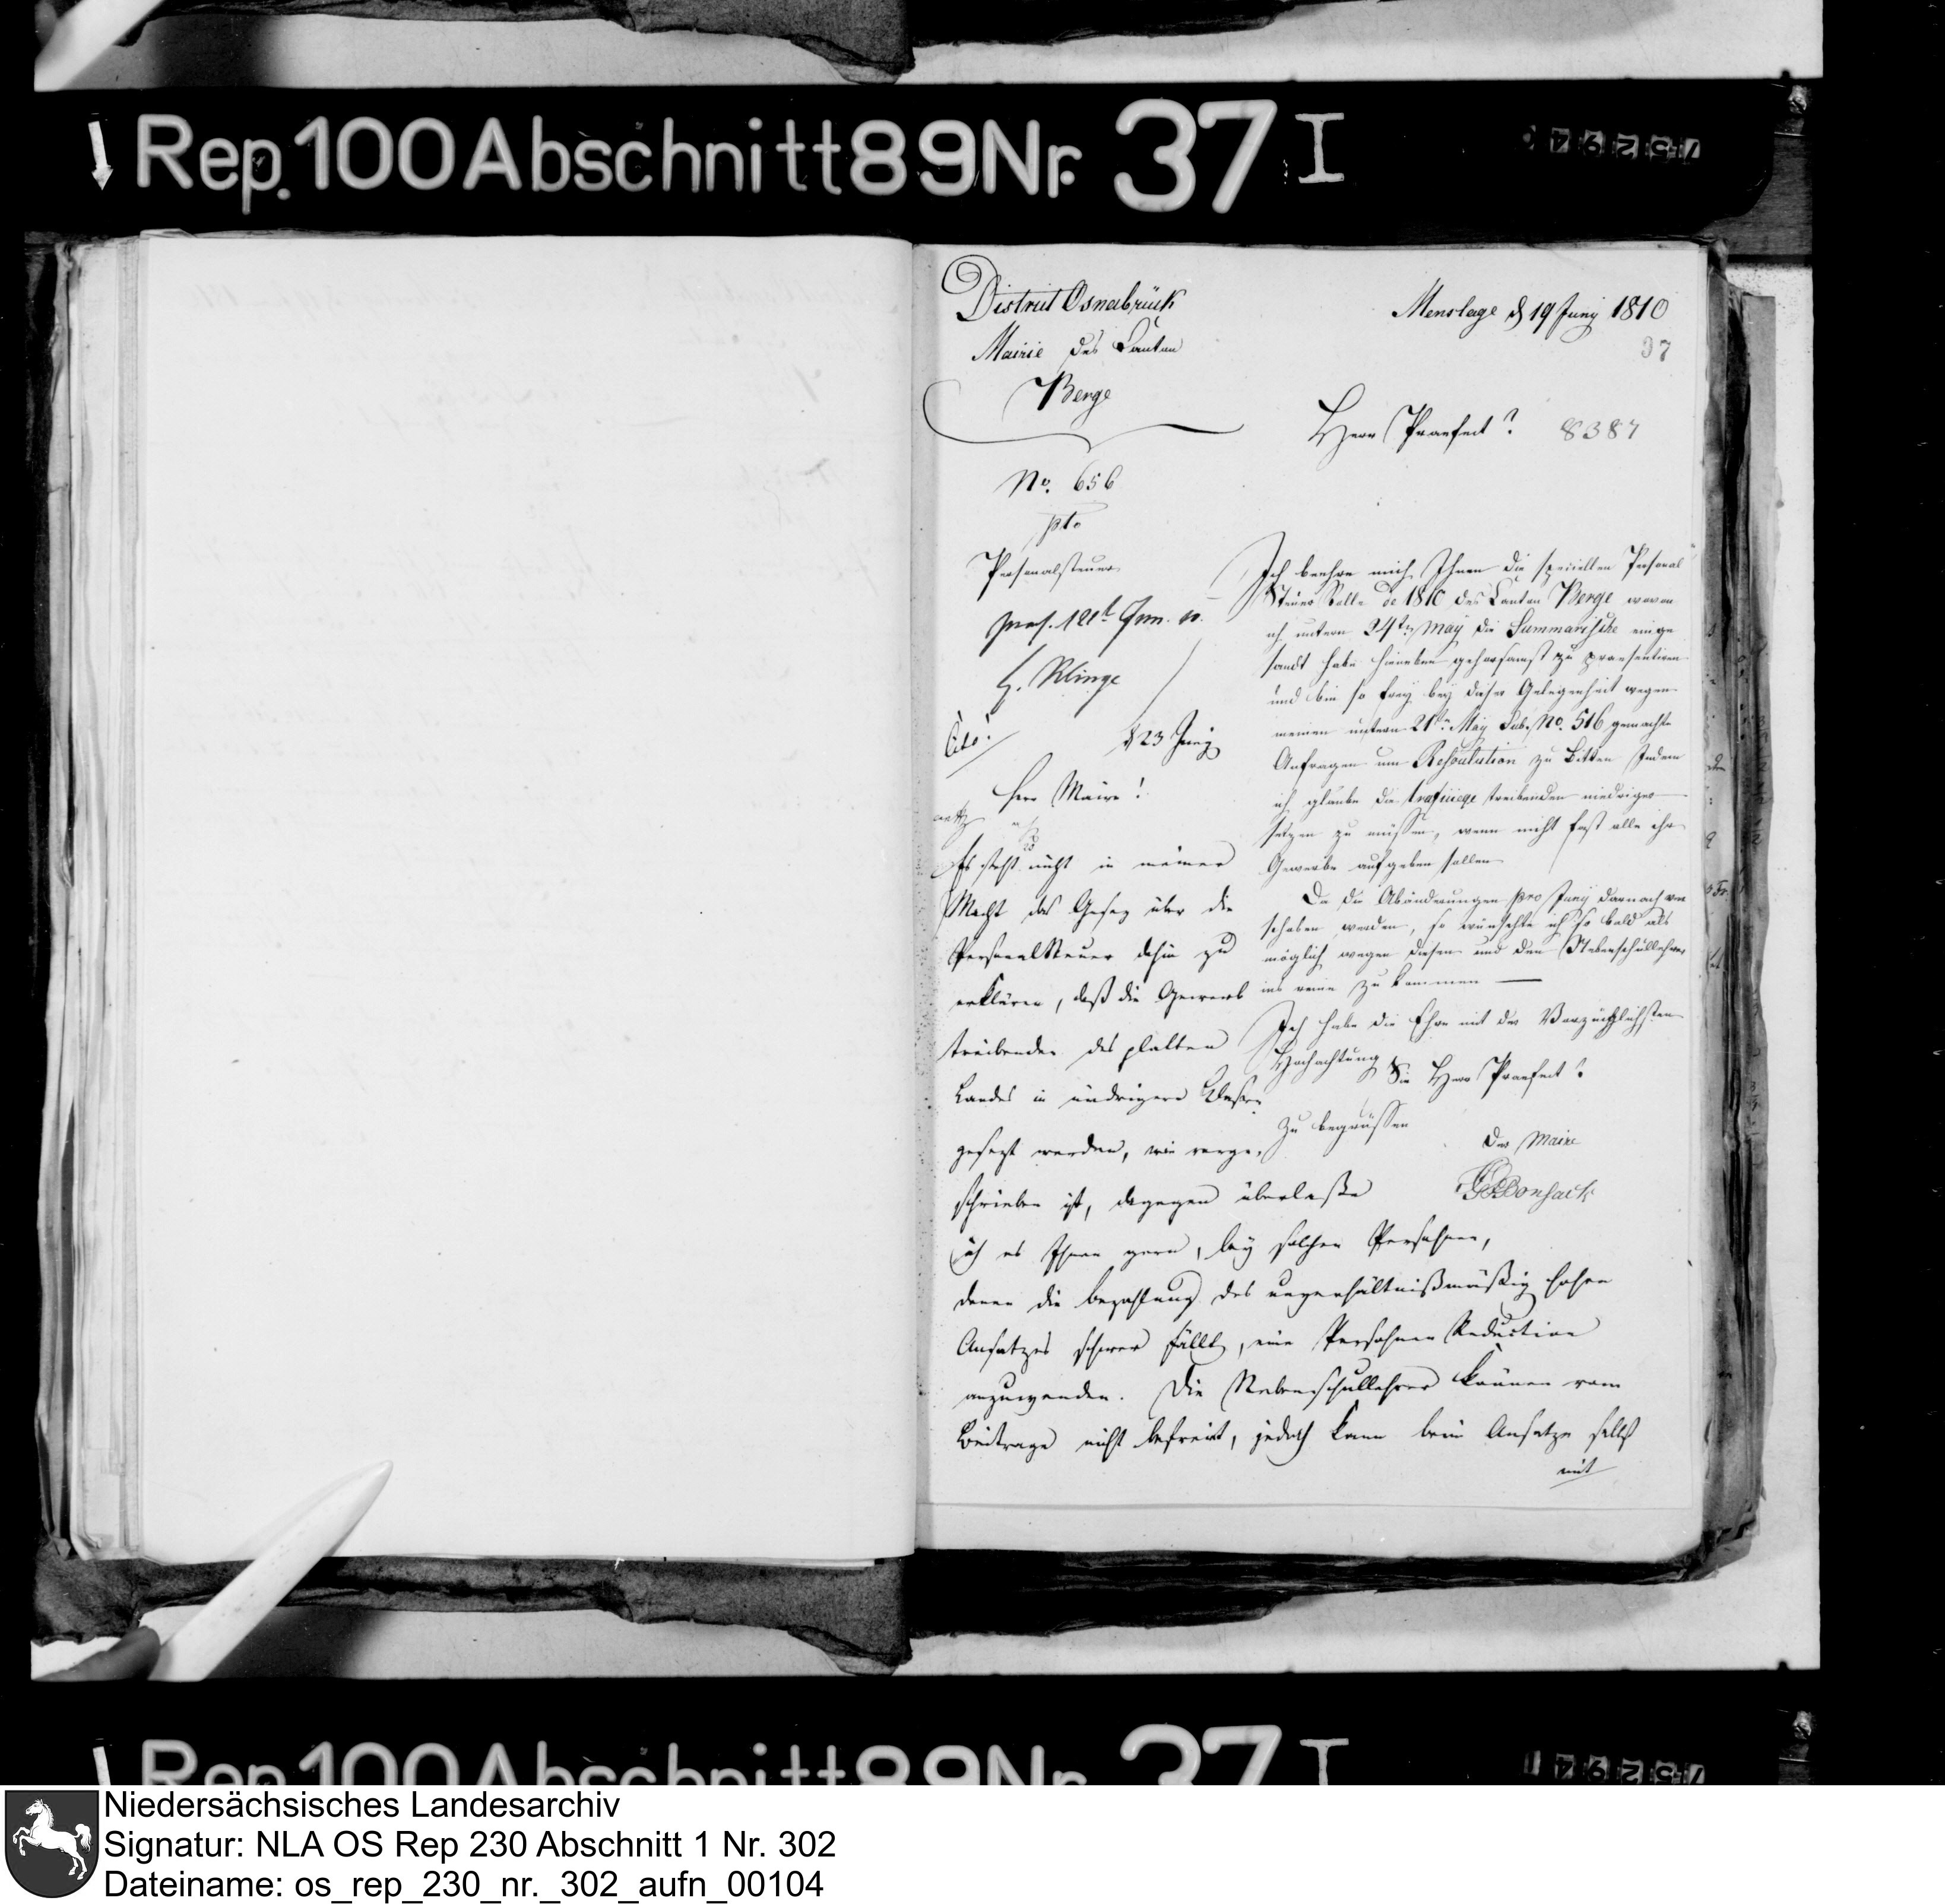 Rep. 100 Abschnitt 89 Nr. 37 I
District Osnabrück
Mairie des Canton
Berge
No. 656
pto
Personalsteuer
Menslage d 19 Juny 1810
37
Herr Praefect? 8387
Ich beehre mich Ihnen die speciellen Personal
Steuer Rolle de 1810 des Canton Berge wovon
ich untern 24ten May die Summarische einge
sandt habe hieneben gehorsamst zu praesentiren
und bin so frey bey dieser Gelegenheit wegen
meinen untern 21ten May Sub. No. 516 gemachte
Anfragen um Resoulution zu bitten Indem
ich glaube die trafiieqe treibenden niedriger
setzen zu müssen, wenn nicht fast alle ihr
Gewerbe aufgeben sollen
Da die Abänderungen pro Juny darnach
schoben werden, so wünschte ich so bald als
möglich wegen diesen und den Nebenschullehrer
ins reine zu kommen —
Ich habe die Ehre mit der Vorzüghlichsten
Hochachtung Sie Herr Praefect?
Zu begrüssen
Der Maire
Bonsack
praes. 121t Jun. 10.
H. Klinge
Cito!
d 23 Juny
Herr Maire!
Es steht nicht in meiner
Macht das Gesez über die
Personalsteuer dahin zu
erklären, daß die Gewerb
treibenden des platten
Landes in niedrigere Classen
gesezt werden, wie vorge,
schrieben ist, dagegen überlaße
ich es Ihnen gern, bey solchen Persohnen,
denen die bezahlung des unverhältnißmäßig hohen
Ansatzes schwer fällt, eine Persohnen Reduction
anzuwenden. Die Nebenschullehrer können vom
Beitrage nicht befreiet, jedoch kann beim Ansatze selbst
mit
Rep. 100 Abschnitt 89 Nr. 37 I
Niedersächsisches Landesarchiv
Signatur: NLA OS Rep 230 Abschnitt 1 Nr. 302
Dateiname: os_rep_230_nr._302_aufn_00104